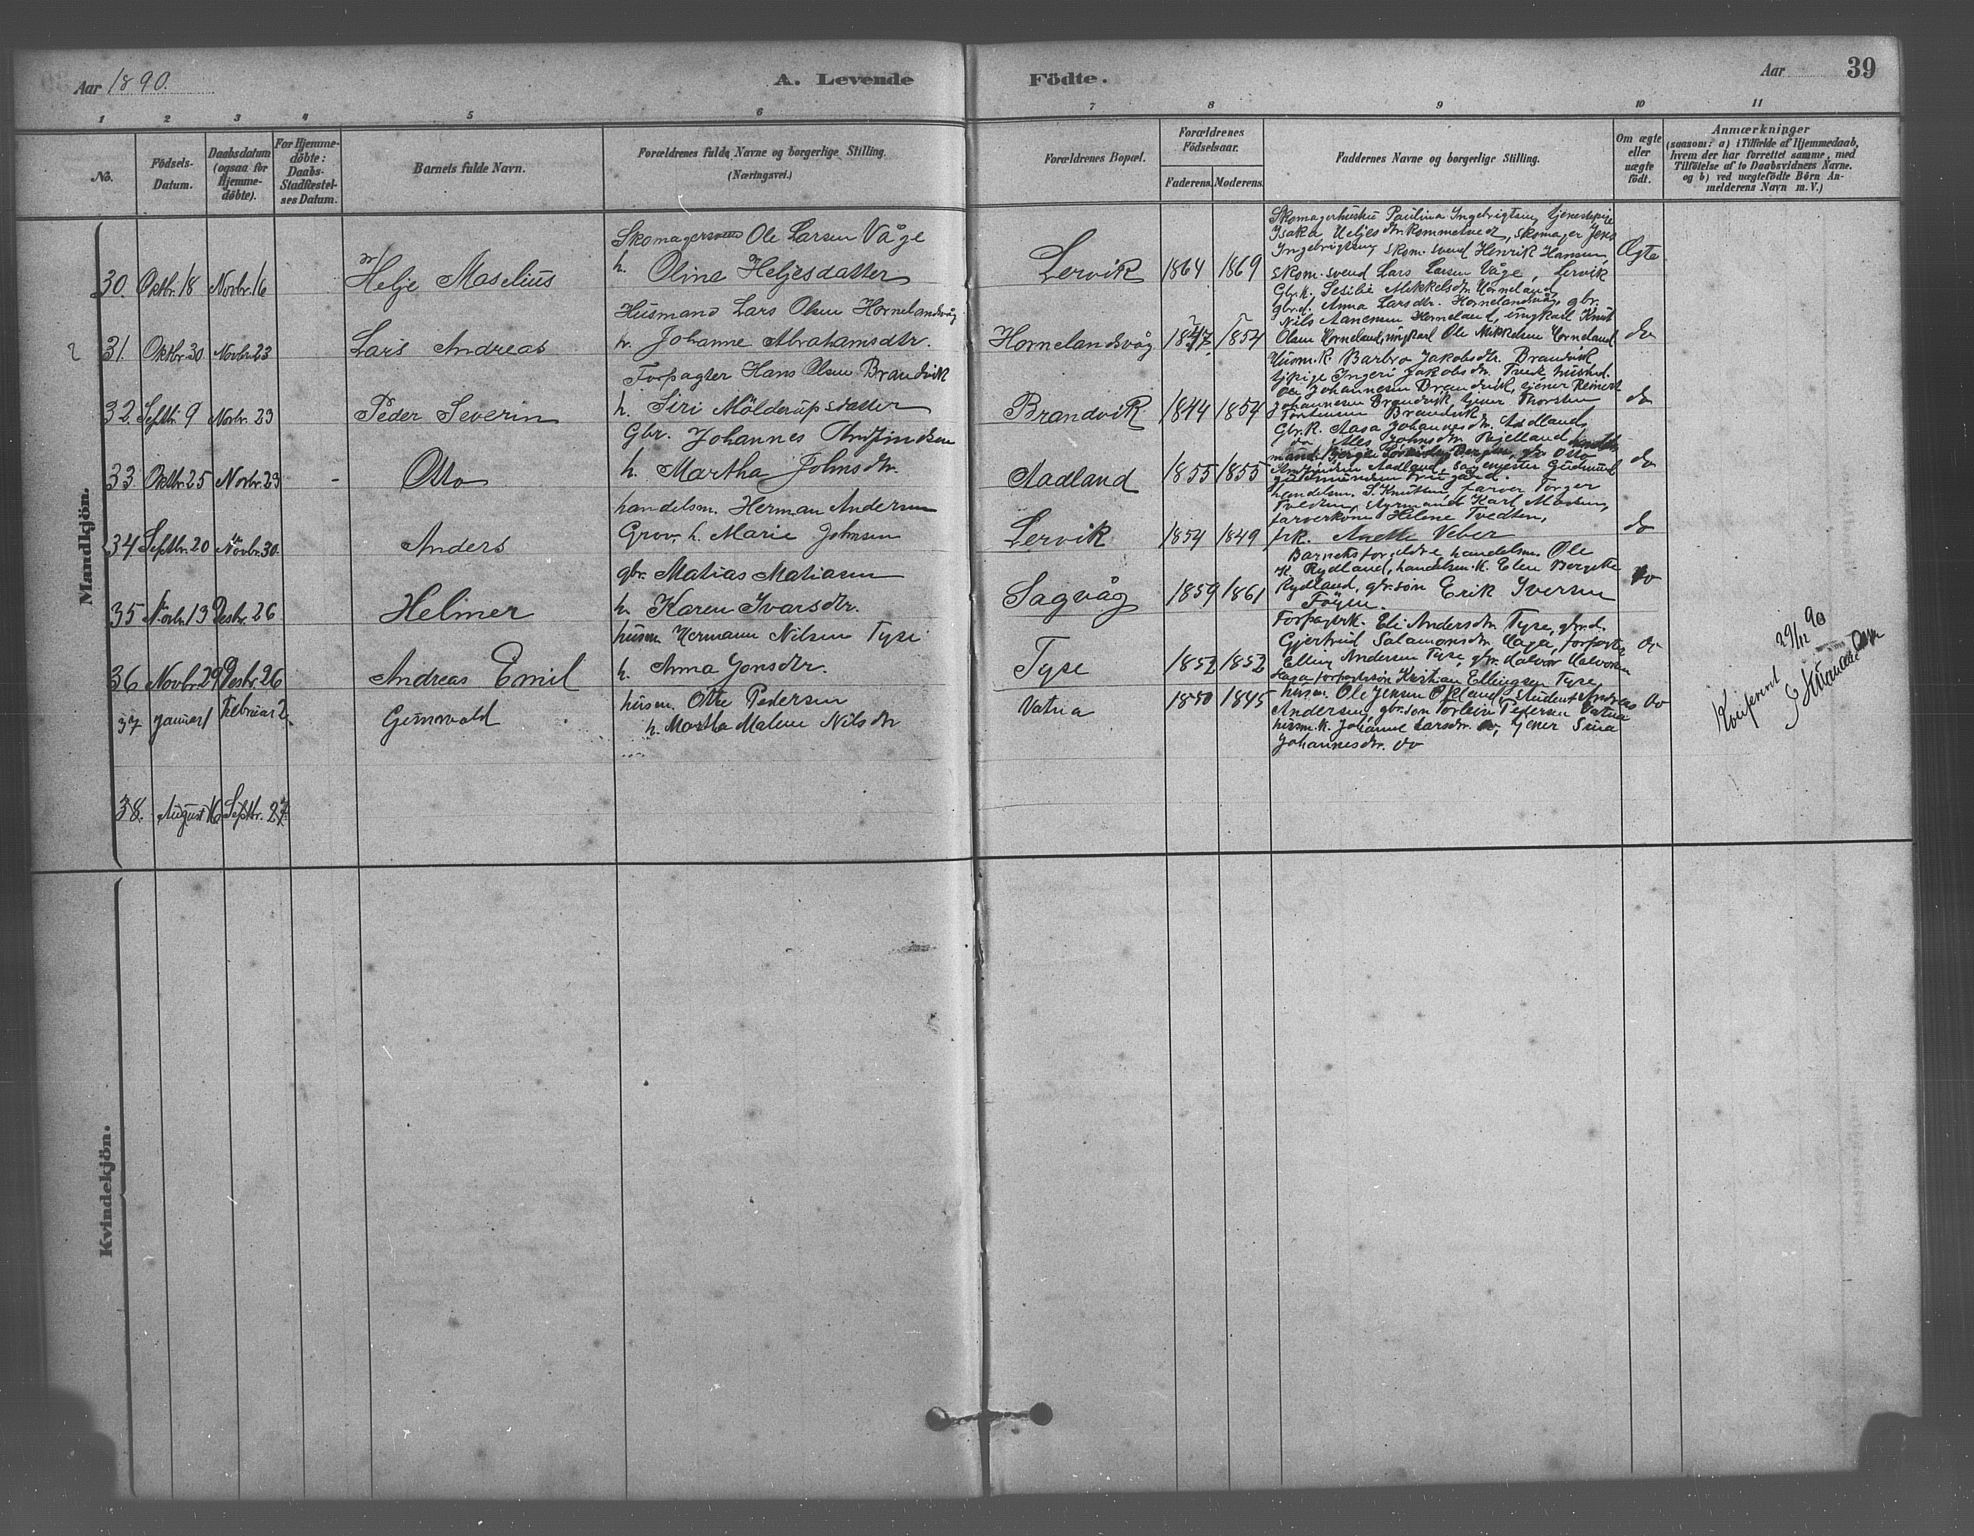 Aar 1890.
A. Levende Födte.
Aar
39
1 2 3 4 5 6 7 8 9 10 11
No.
Födsels-Datum.
Daabsdatum (ogsaa for Hjemme-döbte).
For Hjemme-döbte: Daabs-Stadfæstel-ses Datum.
Barnets fulde Navn.
Forældrenes fulde Navne og borgerlige Stilling.
(Næringsvei.)
Forældrenes Bopæl.
Forældrenes Födselsaar.
Faderens. Moderens.
Faddernes Navne og borgerlige Stilling.
Om ægte eller uægte födt.
Anmærkninger
(saasom: a) i Tilfælde af Hjemmedaab,
hvem der har forrettet samme, med
Tilföielse af to Daabsvidners Navne.
og b) ved uægtefödte Börn An-
melderens Navn m. V.)
Mandkjön.
30. Oktbr. 18 Novbr. 16 Helje Maselius
Skomagersvend Ole Larsen Våge
h. Oline Heljesdatter
Lervik 1864 1869
Skomagerhustru Paulina Ingebrigtsen, tjenestepige
Isaka Heljesdtr Kommelvedt, skomager Jens
Ingebrigtsen, skom. svend Henrik Hansen,
skom. svend Lars Larsen Våge, Lervik
Ægte
31. Oktbr. 30 Novbr. 23 Lars Andreas
Husmand Lars Olsen Hornelandsvåg
h. Johanne Abrahamsdtr.
Hornelandsvåg 1847. 1854
Gbr.k. Sesilie Mikkelsdtr Horneland,
gbr.d. Anna Larsdtr. Hornelandsvåg, gbr.
Nils Aanensen Horneland, ungkarl Knut
Olsen Horneland, ungkarl Ole Mikkelsen Horneland
do
32. Septbr. 9 Novbr. 23 Peder Severin
Forpagter Hans Olsen Brandvik
h. Siri Mölderupsdatter
Brandvik 1844 1854
Husm.k. Barbro Jakobsdtr. Brandvik
tjpige Ingeri Jakobsdtr.
Johannesen Brandvik, tjener Reinert
Johannesen Brandvik, tjener Thorsten
Torstensen Brandvik.
do
33 Oktbr. 25 Novbr. 23 - Otto
Gbr. Johannes Andfindsen
h. Martha Johnsdtr.
Aadland 1855 1855
Gbr.k. Aasa Johannesdtr. Aadland,
do Ales Johnsdtr. Bjelland
Otto
Andfindsen Aadland, sagmester Gudmund
do
34 Septbr. 20 Novbr. 30. Anders
handelsm. Herman Andersen
Grov. h. Marie Johnsen
Lervik 1854 1849
handelsm. S. Knutsen, farver Torger
Tvedten, styrmand Karl Monsen,
farverkone Helene Tvedten,
frk. Anette Veber
do
35 Novbr. 13 Desbr. 26 Helmer
gbr. Matias Matiasen
h. Karen Ivarsdtr.
Sagvåg 1859 1861
Barnets forældre, handelsm. Ole
K. Rydland, handelsm.k. Elen Bergette
Rydland, gbr.søn Erik Iversen
Föyen.
do
36 Novbr. 29 Desbr. 26 Andreas Emil
husm. Hermann Nilsen Tyse
h. Anna Jonsdtr.
Tyse 1852 1852
Forpagt.k. Eli Andersdtr. Tyse, gbr.d.
Gjertrud Salamonsdtr Haga, forpagter
Elling Andersen Tyse, gbr. Halvor Halvorsen
Haga, forpagtersön Kristian Ellingsen Tyse
do
37 Januar 1 Februar 2. Gunnvald
husm. Otte Pedersen
h. Martha Malene Nilsdtr
Vatna 1850 1845
husm. Ole Jensen Økland, student Andreas
Andersen, gbr.søn Torleiv Pedersen Vatna
husm.k. Johanne Larsdtr. do, tjener Sina
Johannesdtr. do
do
38. August 16 Septbr. 27.
Konfereret 29/12 90
Kvindekjön.